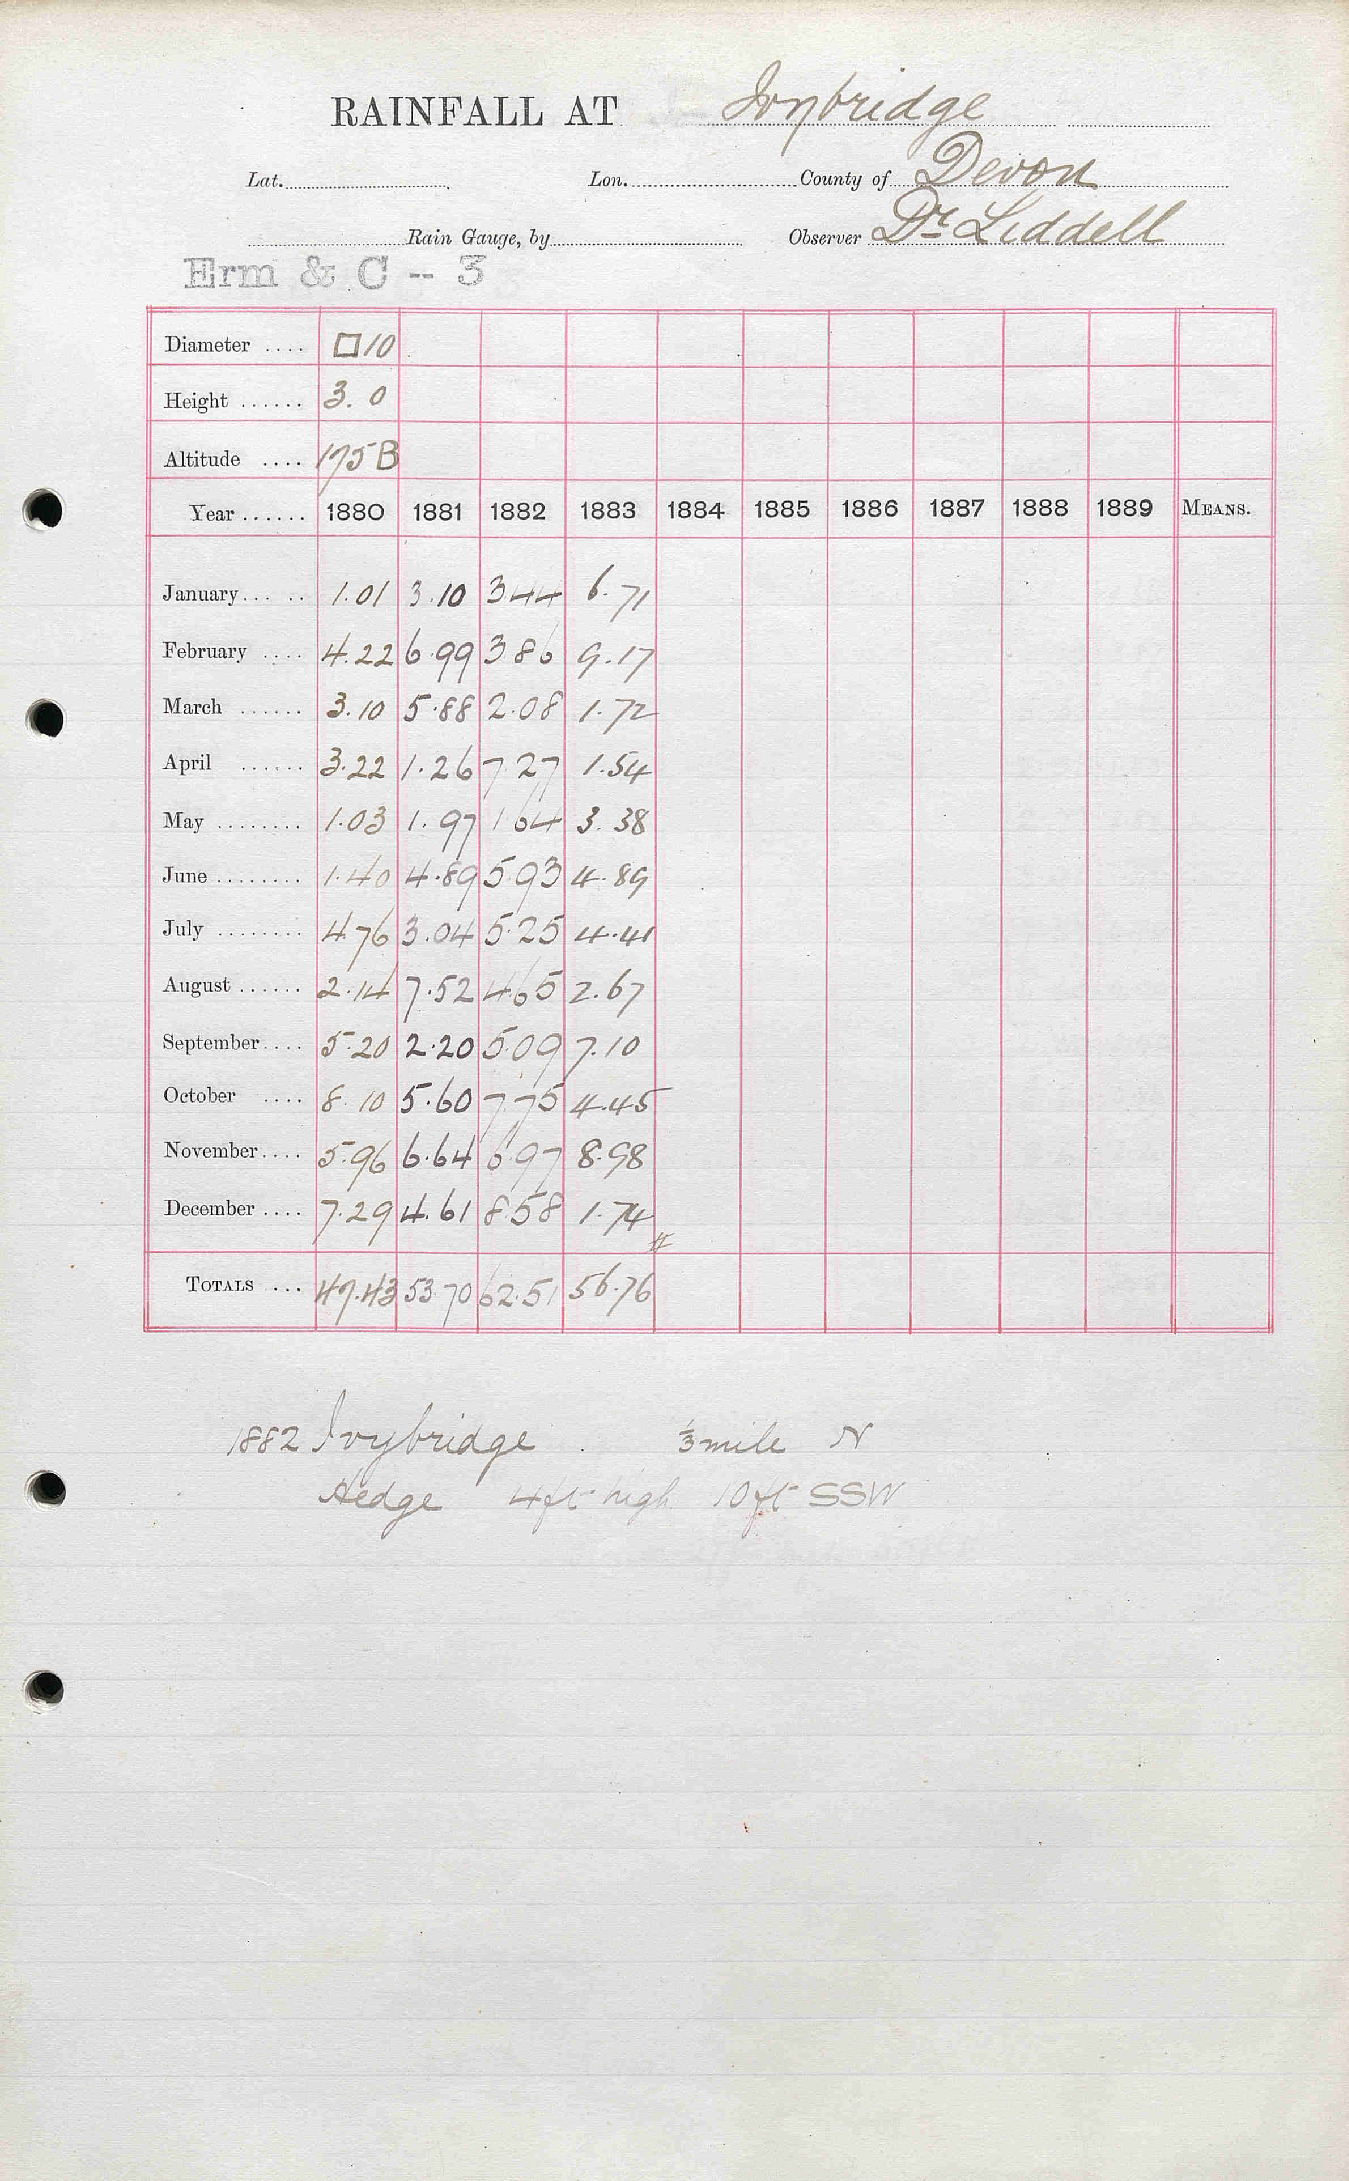 RAINFALL AT Ivybridge
Lat. Lon. County of Devon
Rain Gauge, by Observer Dr Liddell
Erm & C -- 3
Diameter .... □10
Height ...... 3.0
Altitude .... 175B
Year ...... 1880 1881 1882 1883 1884 1885 1886 1887 1888 1889 MEANS.
January ... .. 1.01 3.10 3 44 6.71
February .... 4.22 6.99 3 86 9.17
March ...... 3.10 5.88 2.08 1.72
April ...... 3.22 1.26 7.27 1.54
May ........ 1.03 1.97 1 64 3.38
June ........ 1.40 4.89 5 93 4.89
July ........ 4.76 3.04 5.25 4.41
August ...... 2.14 7.52 4.65 2.67
September .... 5.20 2.20 5.09 7.10
October .... 8.10 5.60 7.75 4.45
November .... 5.96 6.64 6 97 8.98
December .... 7.29 4.61 8.58 1.74
#
TOTALS ... 47.43 53 70 62.51 56.76
1882 Ivybridge . ⅓ mile N
Hedge 4ft high 10ft SSW